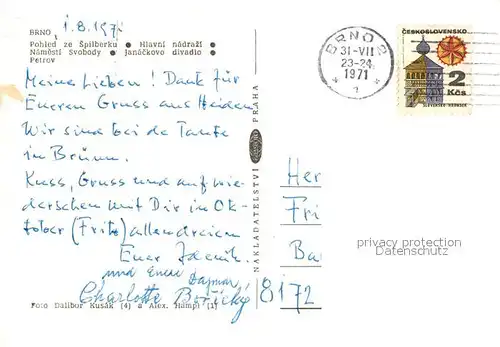 1.8.1971
BRNO
Pohled ze Špilberku ● Hlavní nádraží ●
Náměstí Svobody ● Janáčkovo divadlo ●
Petrov
Meine Lieben! Dank für
Eueren Gruss aus Heiden.
Wir sind bei de Tante
in Brünn.
Kuss, Gruss und auf wie-
dersehen mit Dir in Ok-
tober (Fritz) allendreien
Euer Zdenik.
und Euere Dagmar
Charlotte
Foto Dalibor Kusák (4) a Alex. Hampl (1)
NAKLADATELSTVÍ PRAHA
BRNO 2
31-VII
23-24
1971
ČESKOSLOVENSKO
2
Kčs
Her
Fri
Ba
8172
privacy protection
Datenschutz